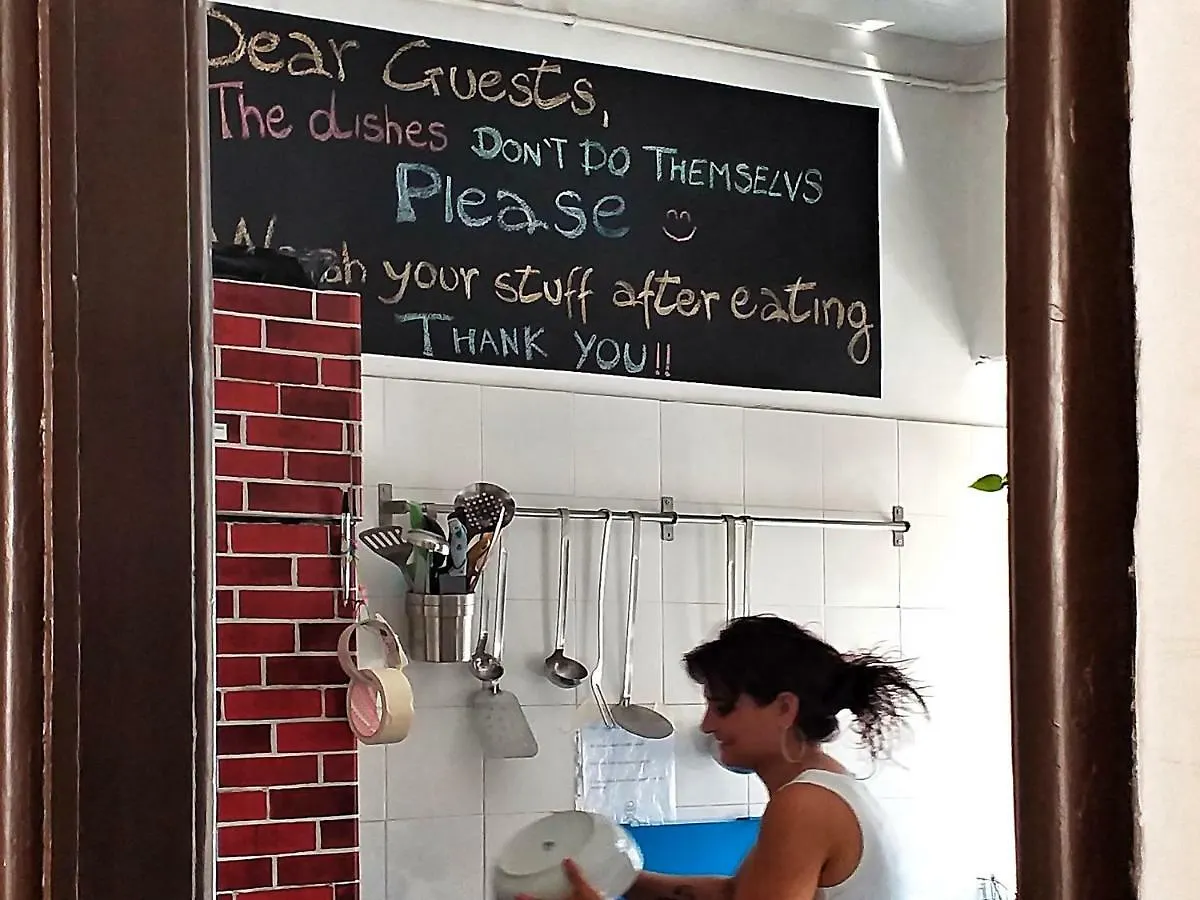 Dear Guests,
The dishes DON'T DO THEMSELVS
Please
Wash your stuff after eating
THANK YOU!!